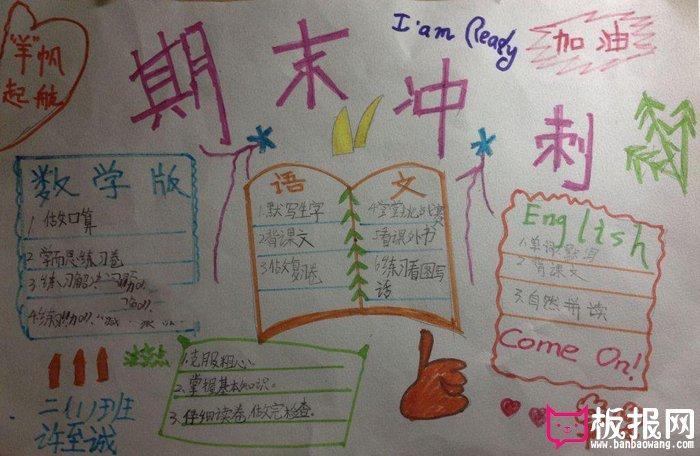 "羊"帆
起航
期末冲刺
I am Ready
加油
数学版
1 做口算
2 学而思练习卷
3
4.
语文
1.默写生字
2背课文
3做复习卷
5.看课外书
6练习看图写
话
English
1.单词默写
2 背课文
3.自然拼读
Come On!
注意点
1.克服粗心.
2.掌握基本知识.
3.仔细读卷,做完检查.
二(1)班
许至诚
板报网
www.banbaowang.com